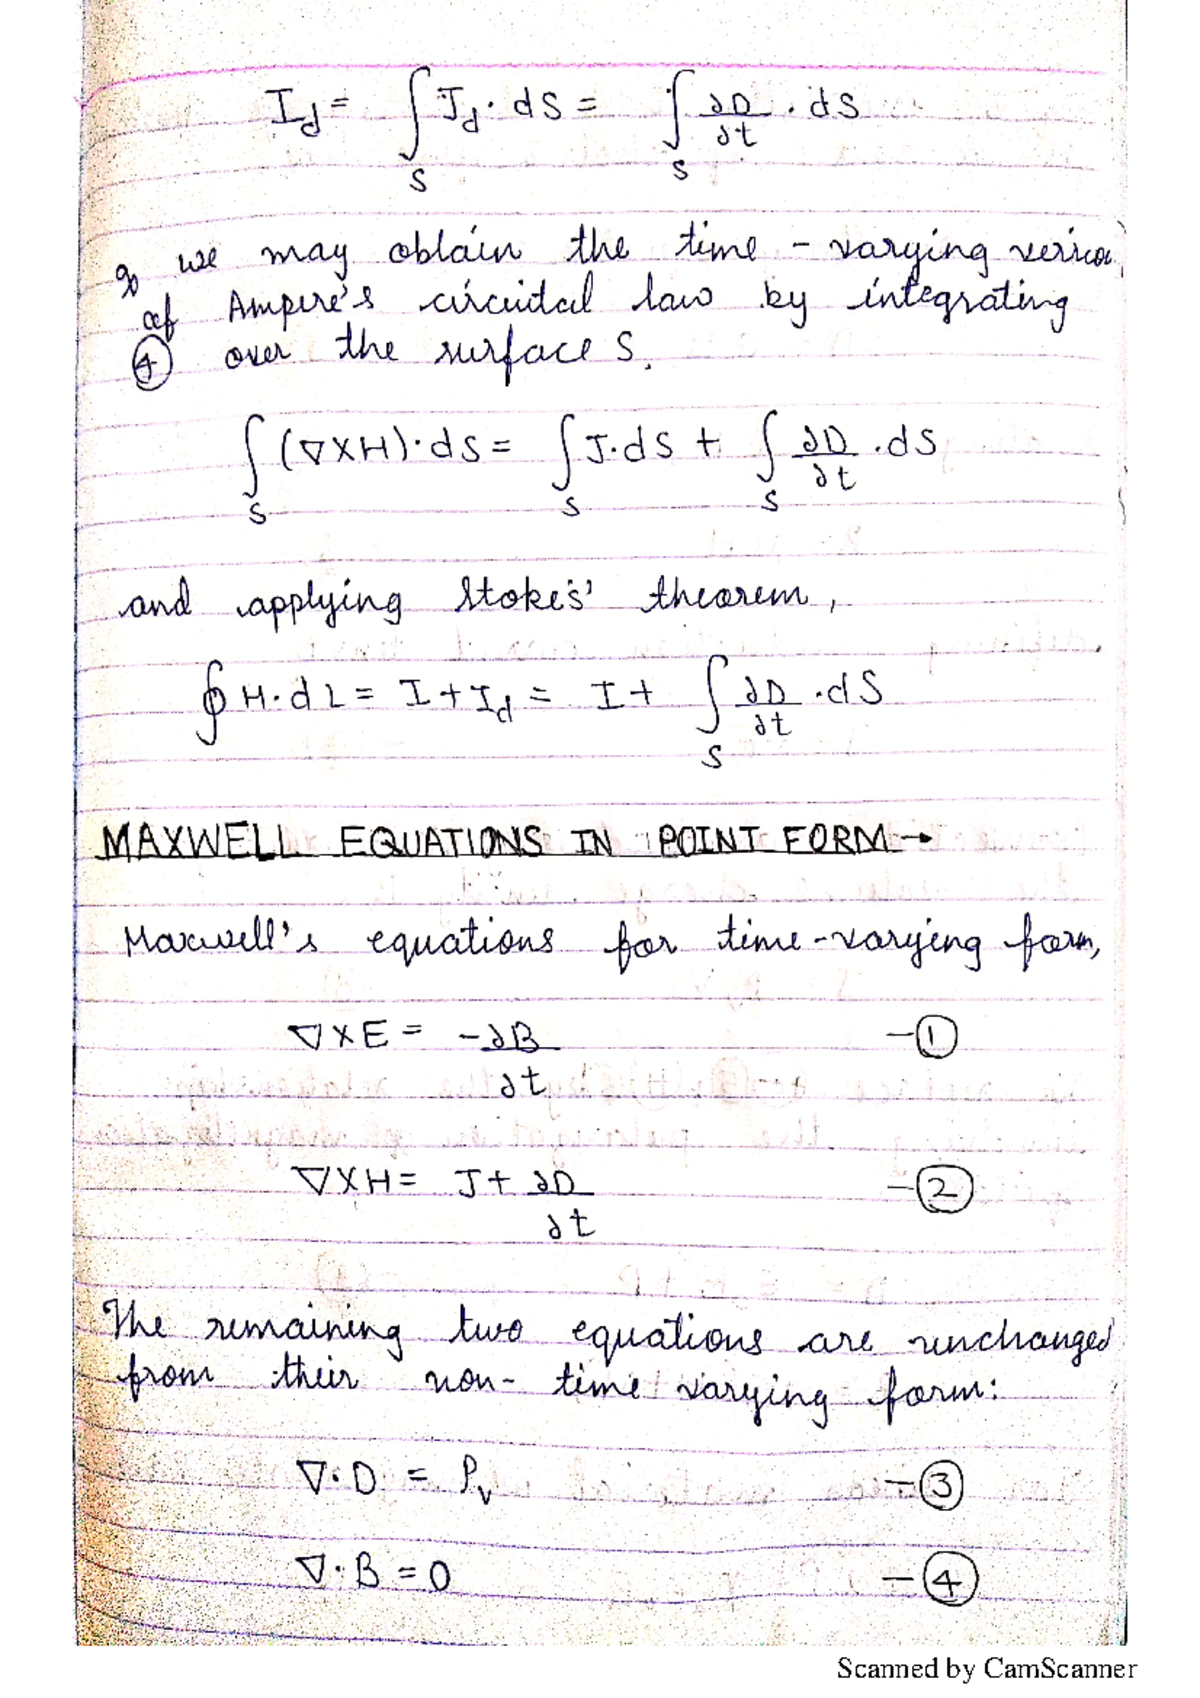 I_d = ∫_S J_d · dS = ∫_S ∂D/∂t · dS
& we may obtain the time - varying
of Ampere's circuital law by integrating
④ over the surface S.
∫_S (∇XH)·dS = ∫_S J·dS + ∫_S ∂D/∂t ·dS
and applying Stoke's' theorem,
∮ H·dL = I + I_d = I + ∫_S ∂D/∂t ·dS
MAXWELL EQUATIONS IN POINT FORM →
Maxwell's equations for time-varying form,
∇XE = -∂B/∂t -①
∇XH = J + ∂D/∂t -②
The remaining two equations are unchanged
from their non- time varying form:
∇·D = ρ_v -③
∇·B = 0 -④
Scanned by CamScanner